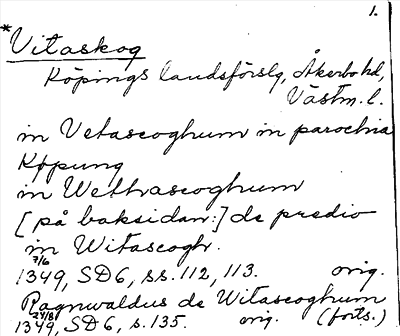 1.
*Vitaskog
Köpings landsförslg, Åkerbo hd,
Västm. l.
in Vetascoghum in parochia
Køpung
in Wethrascoghum
[på baksidan:] de predio
in Witascogh.
7/6
1349, SD6, ss. 112, 113. orig.
Ragnvaldus de Witascoghum
24/8
1349, SD6, s. 135. orig. (forts.)